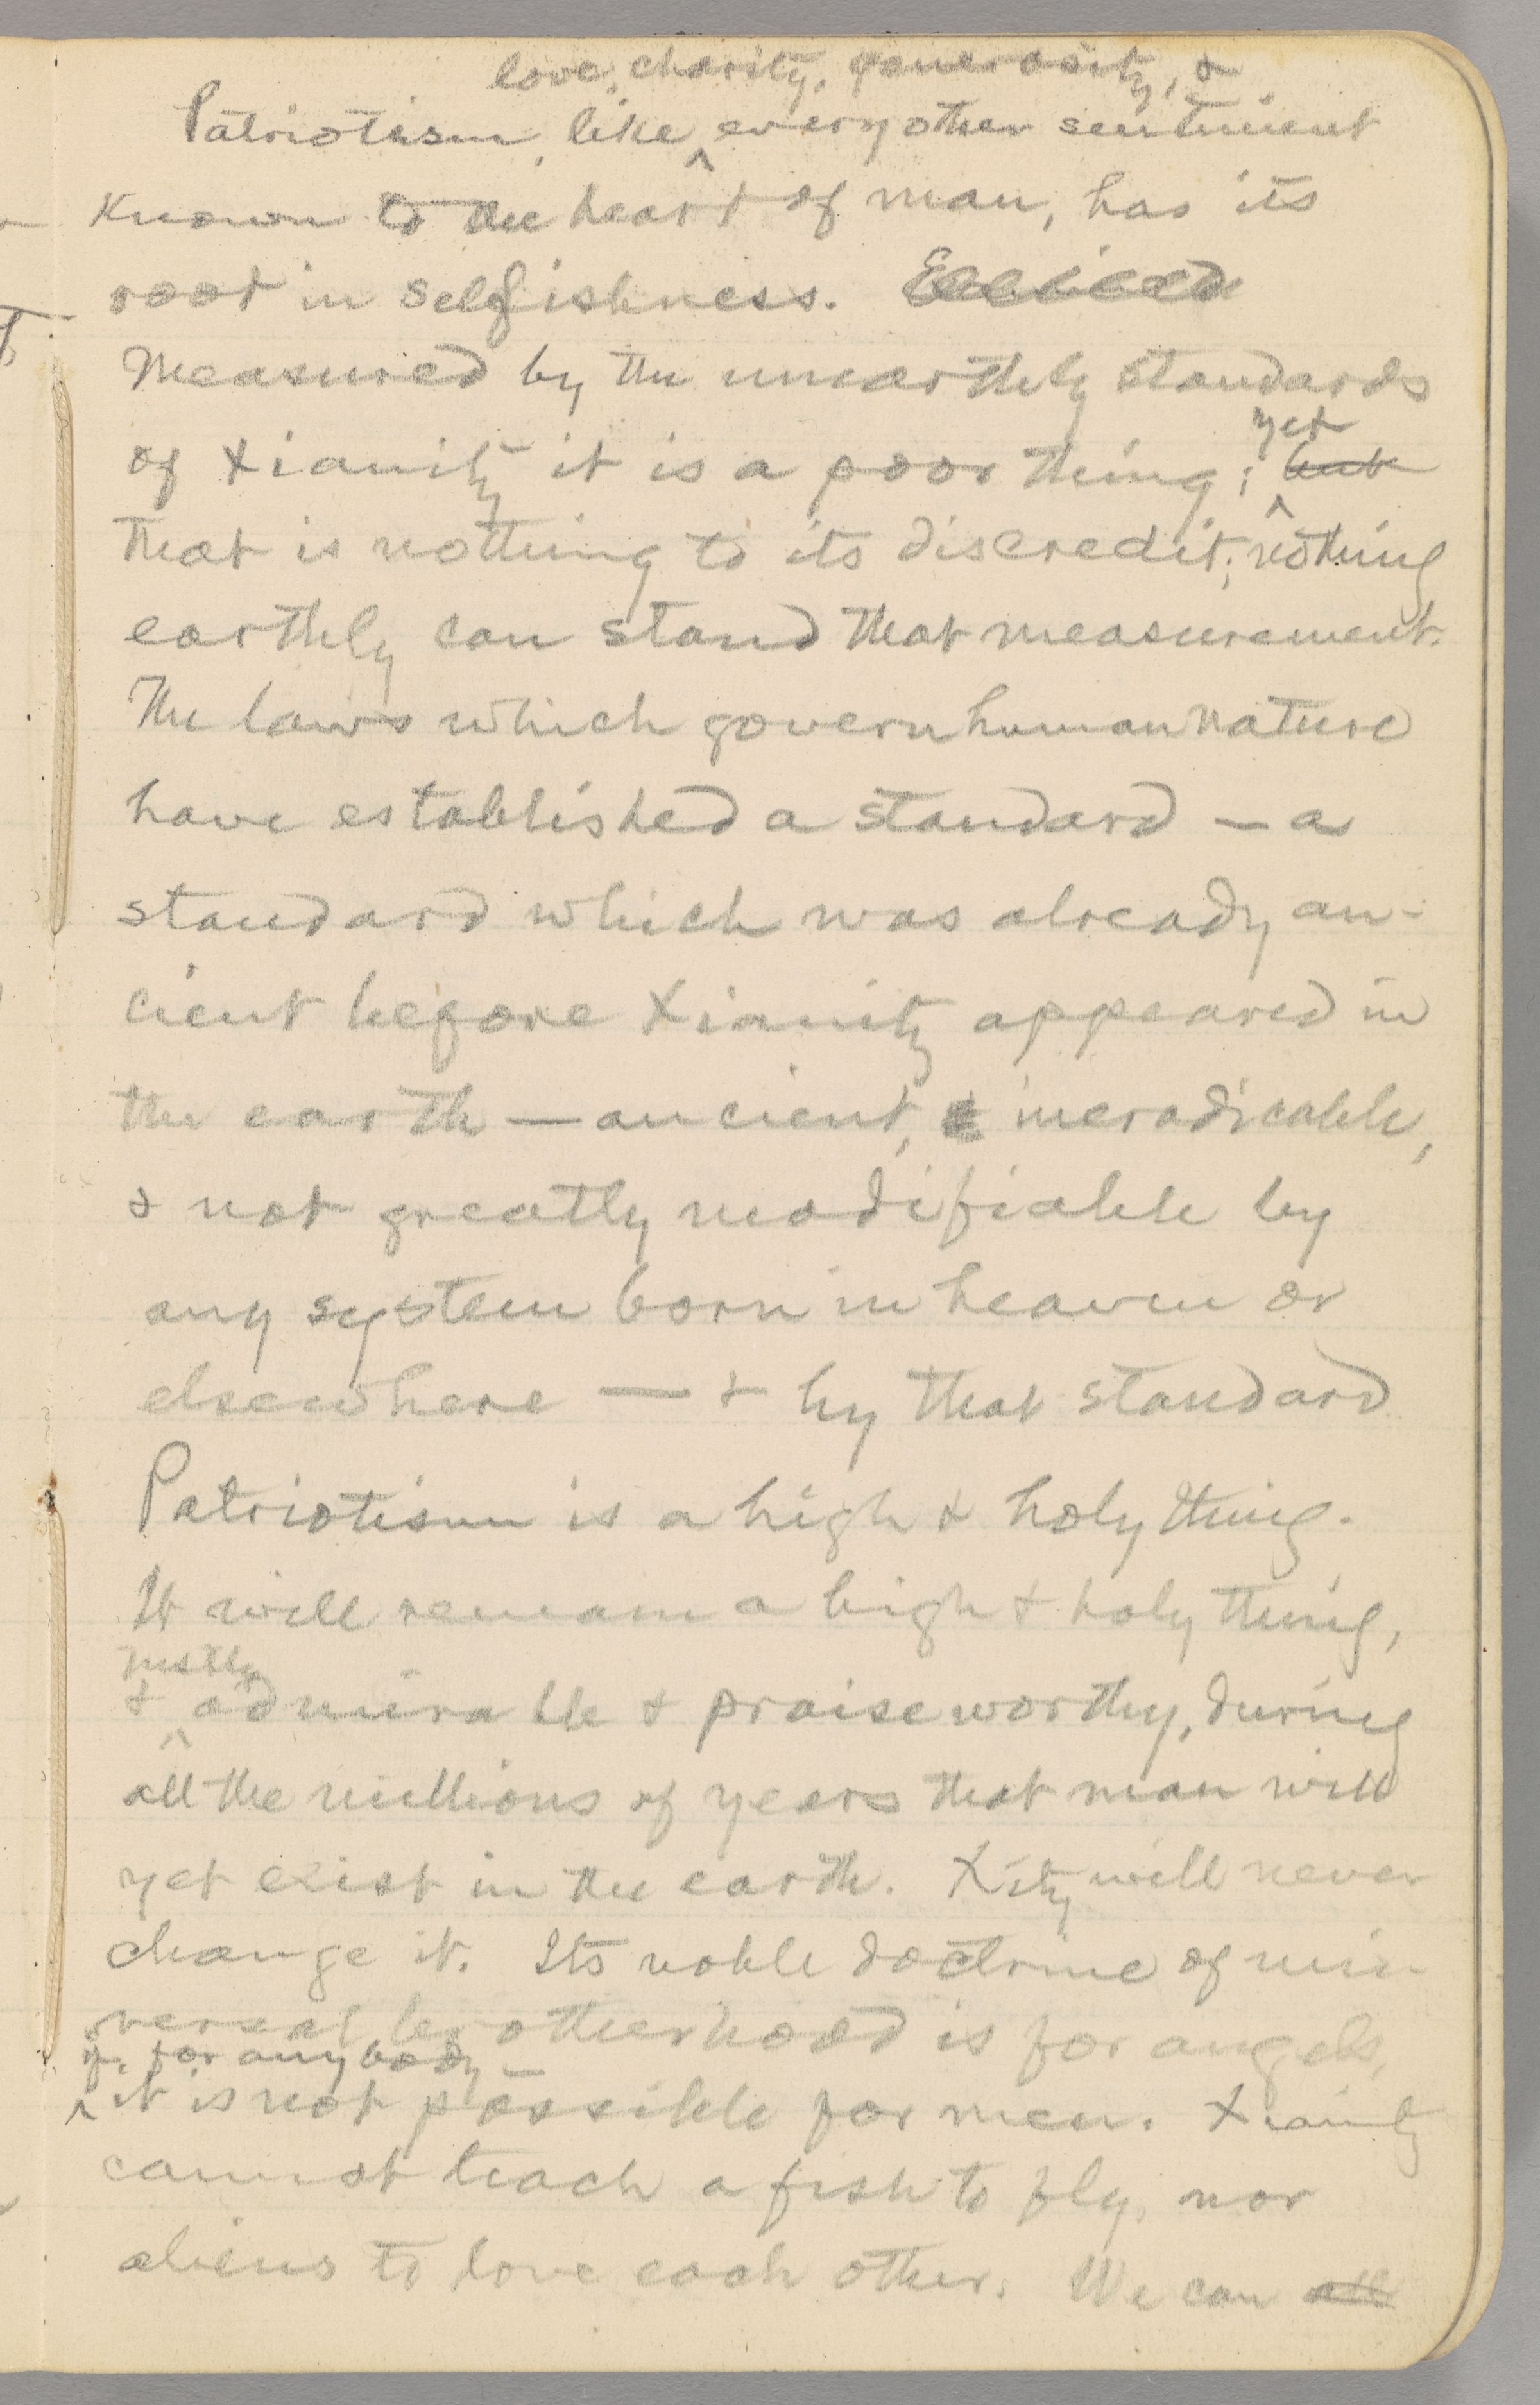 love, charity, generosity, &
Patriotism, like ^ every other sentiment
known to the heart of man, has its
root in selfishness.
Measured by the unearthly standards
of Xianity it is a poor thing; ^ yet but
that is nothing to its discredit; nothing
earthly can stand that measurement.
The laws which govern human nature
have established a standard — a
standard which was already an-
cient before Xianity appeared in
the earth — ancient, ineradicable,
& not greatly modifiable by
any system born in heaven or
elsewhere — & by that standard
Patriotism is a high & holy thing.
It will remain a high & holy thing,
justly
& ^ admirable & praiseworthy, during
all the millions of years that man will
yet exist in the earth. Xity will never
change it. Its noble doctrine of uni-
versal brotherhood is for angels,
if for anybody —
^ it is not possible for men. Xianity
cannot teach a fish to fly, nor
aliens to love each other. We can all